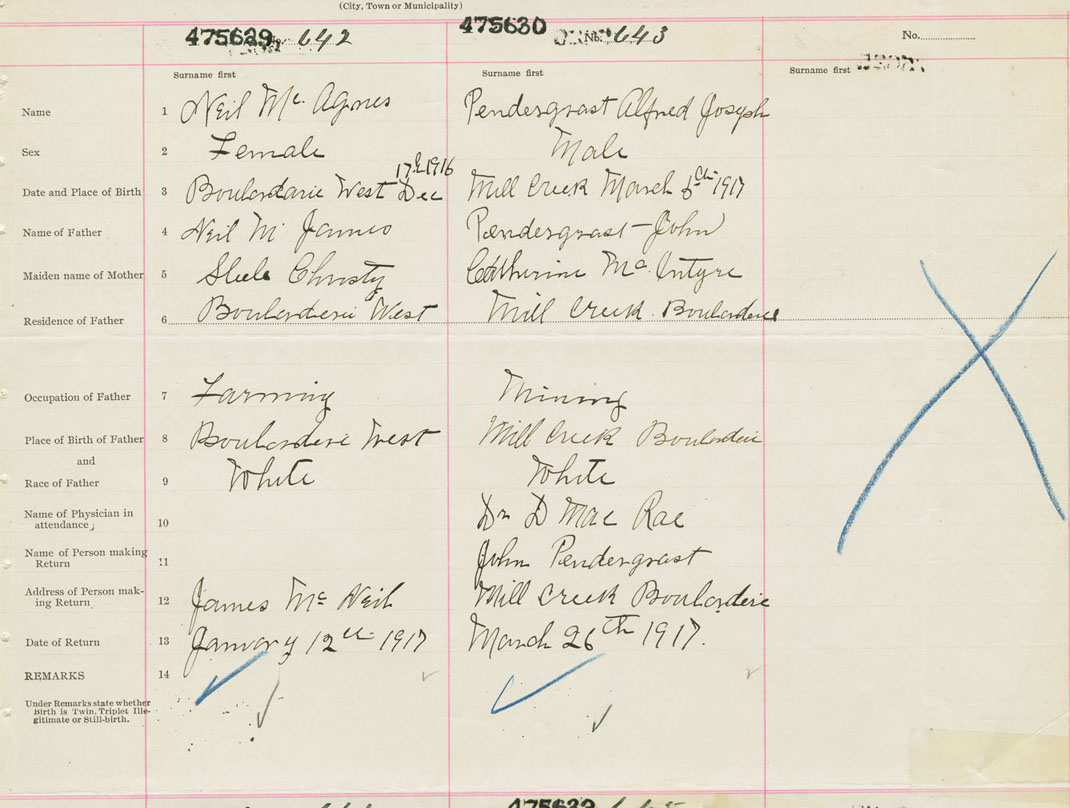 (City, Town or Municipality)
475629 642 475630 No. 643 No.
Surname first Surname first Surname first
Name 1 Neil Mc. Agnes Pendergrast Alfred Joseph
Sex 2 Female Male
17th 1916
Date and Place of Birth 3 Boulardarie West Dec Mill Creek March 1917
Name of Father 4 Neil Mc James Pendergrast - John
Maiden name of Mother 5 Steele Christy Catherine Mc. Intyre
Residence of Father 6 Boularderie West Mill Creek Boularderie
Occupation of Father 7 Farming Mining
Place of Birth of Father 8 Boularderie West Mill Creek Boularderie
and
Race of Father 9 White White
Name of Physician in
attendance 10 Dr D Mac Rae
Name of Person making
Return 11 John Pendergrast
Address of Person mak-
ing Return 12 James Mc Neil Mill Creek Boularderie
Date of Return 13 January 12th 1917 March 26th 1917.
REMARKS 14
Under Remarks state whether
Birth is Twin, Triplet Ille-
gitimate or Still-birth.
475632